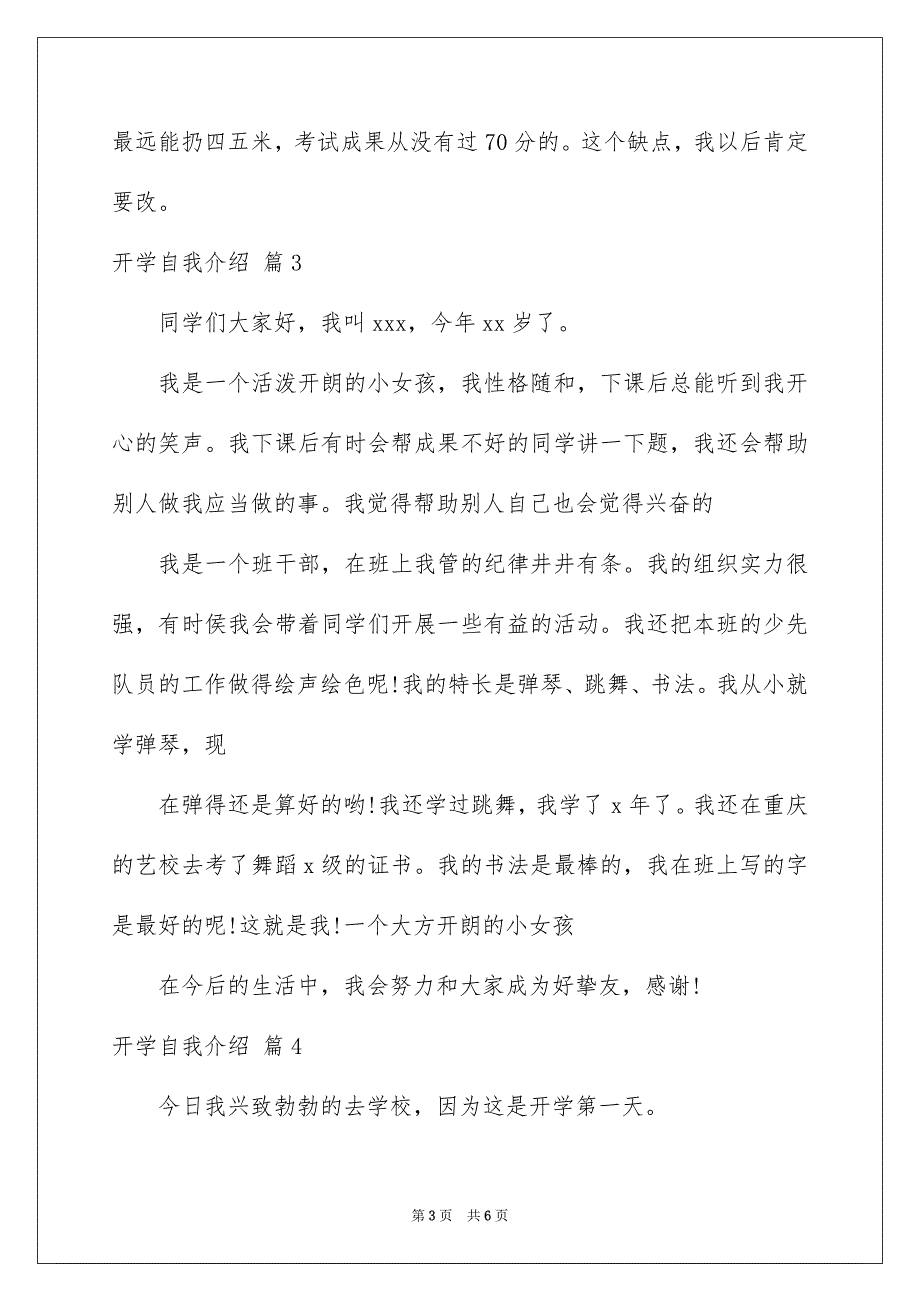 最远能扔四五米，考试成果从没有过 70 分的。这个缺点，我以后肯定
要改。
开学自我介绍 篇 3
同学们大家好，我叫 xxx，今年 xx 岁了。
我是一个活泼开朗的小女孩，我性格随和，下课后总能听到我开
心的笑声。我下课后有时会帮成果不好的同学讲一下题，我还会帮助
别人做我应当做的事。我觉得帮助别人自己也会觉得兴奋的
我是一个班干部，在班上我管的纪律井井有条。我的组织实力很
强，有时侯我会带着同学们开展一些有益的活动。我还把本班的少先
队员的工作做得绘声绘色呢!我的特长是弹琴、跳舞、书法。我从小就
学弹琴，现
在弹得还是算好的哟!我还学过跳舞，我学了 x 年了。我还在重庆
的艺校去考了舞蹈 x 级的证书。我的书法是最棒的，我在班上写的字
是最好的呢!这就是我!一个大方开朗的小女孩
在今后的生活中，我会努力和大家成为好挚友，感谢!
开学自我介绍 篇 4
今日我兴致勃勃的去学校，因为这是开学第一天。
第 3 页 共 6 页